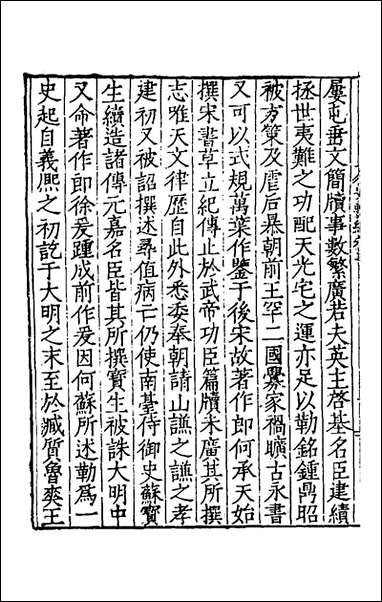 屢屯垂文簡牘事數繁廣若夫英主啓基名臣建績
拯世夷難之功配天光宅之運亦足以勒銘鍾鼎昭
被方策及虐后暴朝前王罕二國釁家禍曠古永書
又可以式規萬葉作鑒于後宋故著作郎何承天始
撰宋書草立紀傳止於武帝功臣篇牘未廣其所撰
志雅天文律歷自此外悉委奉朝請山謙之謙之孝
建初又被詔撰述尋值病亡仍使南臺侍御史蘇寳
生續造諸傳元嘉名臣皆其所撰寳生被誅大明中
又命著作郎徐爰踵成前作爰因何蘇所述勒爲一
史起自義熙之初訖于大明之末至於臧質魯爽王